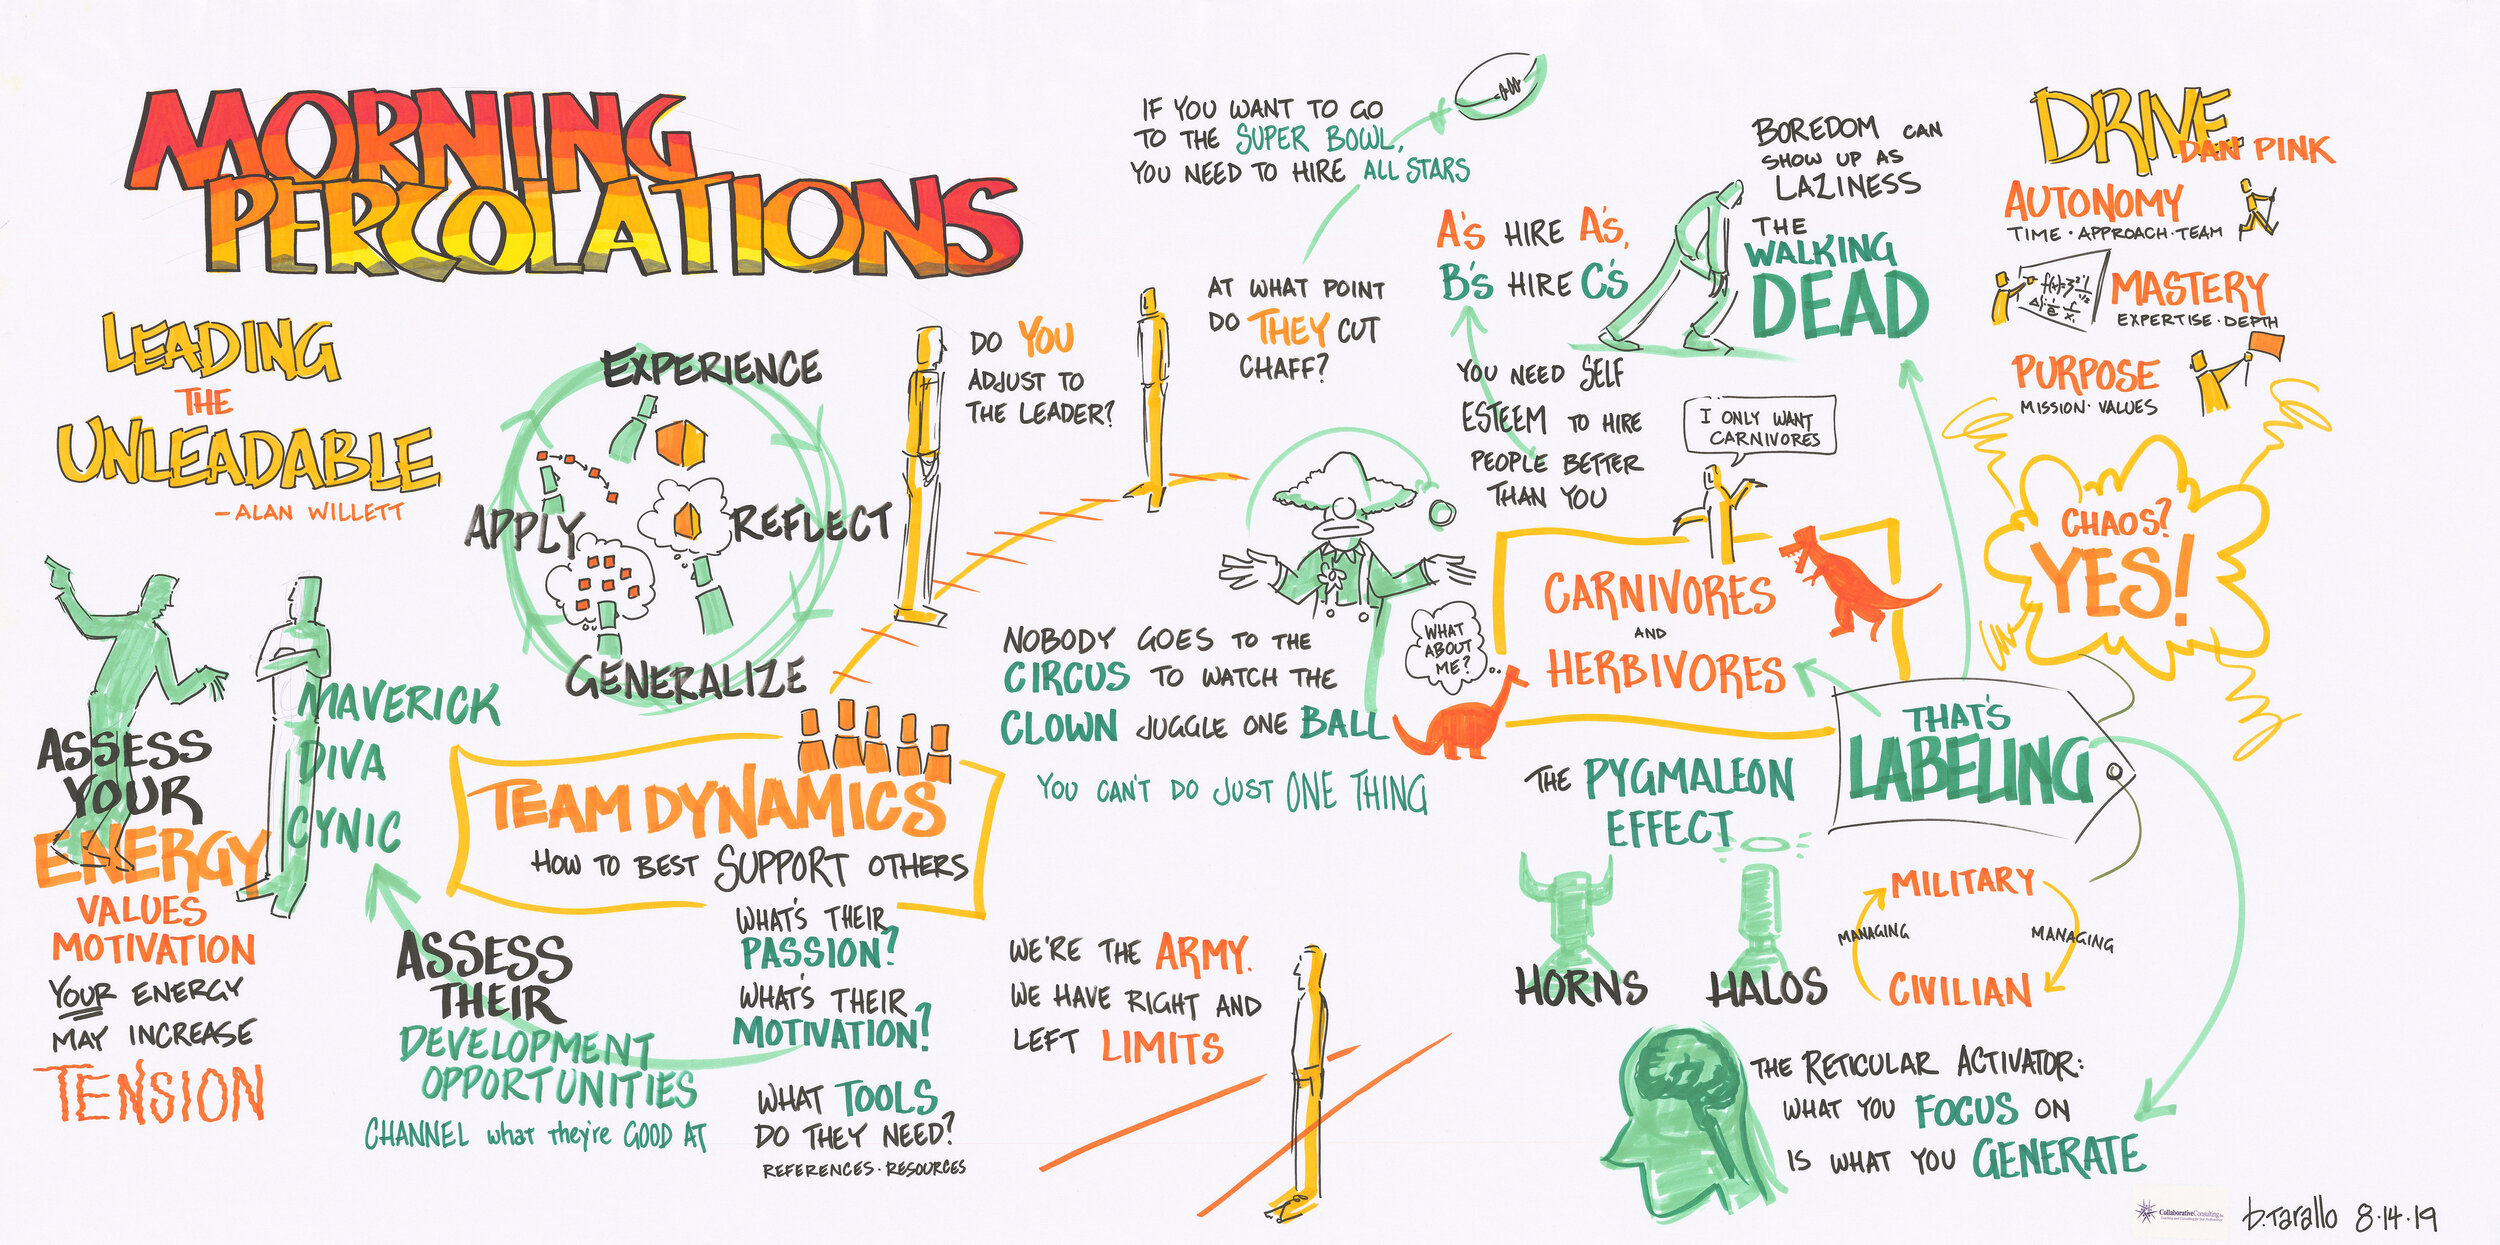 MORNING
PERCOLATIONS
LEADING
THE
UNLEADABLE
- ALAN WILLETT
EXPERIENCE
REFLECT
GENERALIZE
APPLY
MAVERICK
DIVA
CYNIC
ASSESS
YOUR
ENERGY
VALUES
MOTIVATION
YOUR ENERGY
MAY INCREASE
TENSION
TEAM DYNAMICS
HOW TO BEST SUPPORT OTHERS
ASSESS
THEIR
DEVELOPMENT
OPPORTUNITIES
CHANNEL what they're GOOD AT
WHAT'S THEIR
PASSION?
WHAT'S THEIR
MOTIVATION?
WHAT TOOLS
DO THEY NEED?
REFERENCES · RESOURCES
DO YOU
ADJUST TO
THE LEADER?
IF YOU WANT TO GO
TO THE SUPER BOWL,
YOU NEED TO HIRE ALL STARS
AT WHAT POINT
DO THEY CUT
CHAFF?
NOBODY GOES TO THE
CIRCUS TO WATCH THE
CLOWN JUGGLE ONE BALL
YOU CAN'T DO JUST ONE THING
WE'RE THE ARMY.
WE HAVE RIGHT AND
LEFT LIMITS
A's HIRE A's,
B's HIRE C's
YOU NEED SELF
ESTEEM TO HIRE
PEOPLE BETTER
THAN YOU
BOREDOM CAN
SHOW UP AS
LAZINESS
THE
WALKING
DEAD
I ONLY WANT
CARNIVORES
CARNIVORES
AND
HERBIVORES
WHAT
ABOUT
ME?
THAT'S
LABELING
THE PYGMALEON
EFFECT
HORNS
HALOS
MILITARY
MANAGING
MANAGING
CIVILIAN
THE RETICULAR ACTIVATOR:
WHAT YOU FOCUS ON
IS WHAT YOU GENERATE
DRIVE
DAN PINK
AUTONOMY
TIME · APPROACH · TEAM
MASTERY
EXPERTISE · DEPTH
PURPOSE
MISSION · VALUES
CHAOS?
YES!
CollaborativeConsulting
b.Tarallo 8·14·19